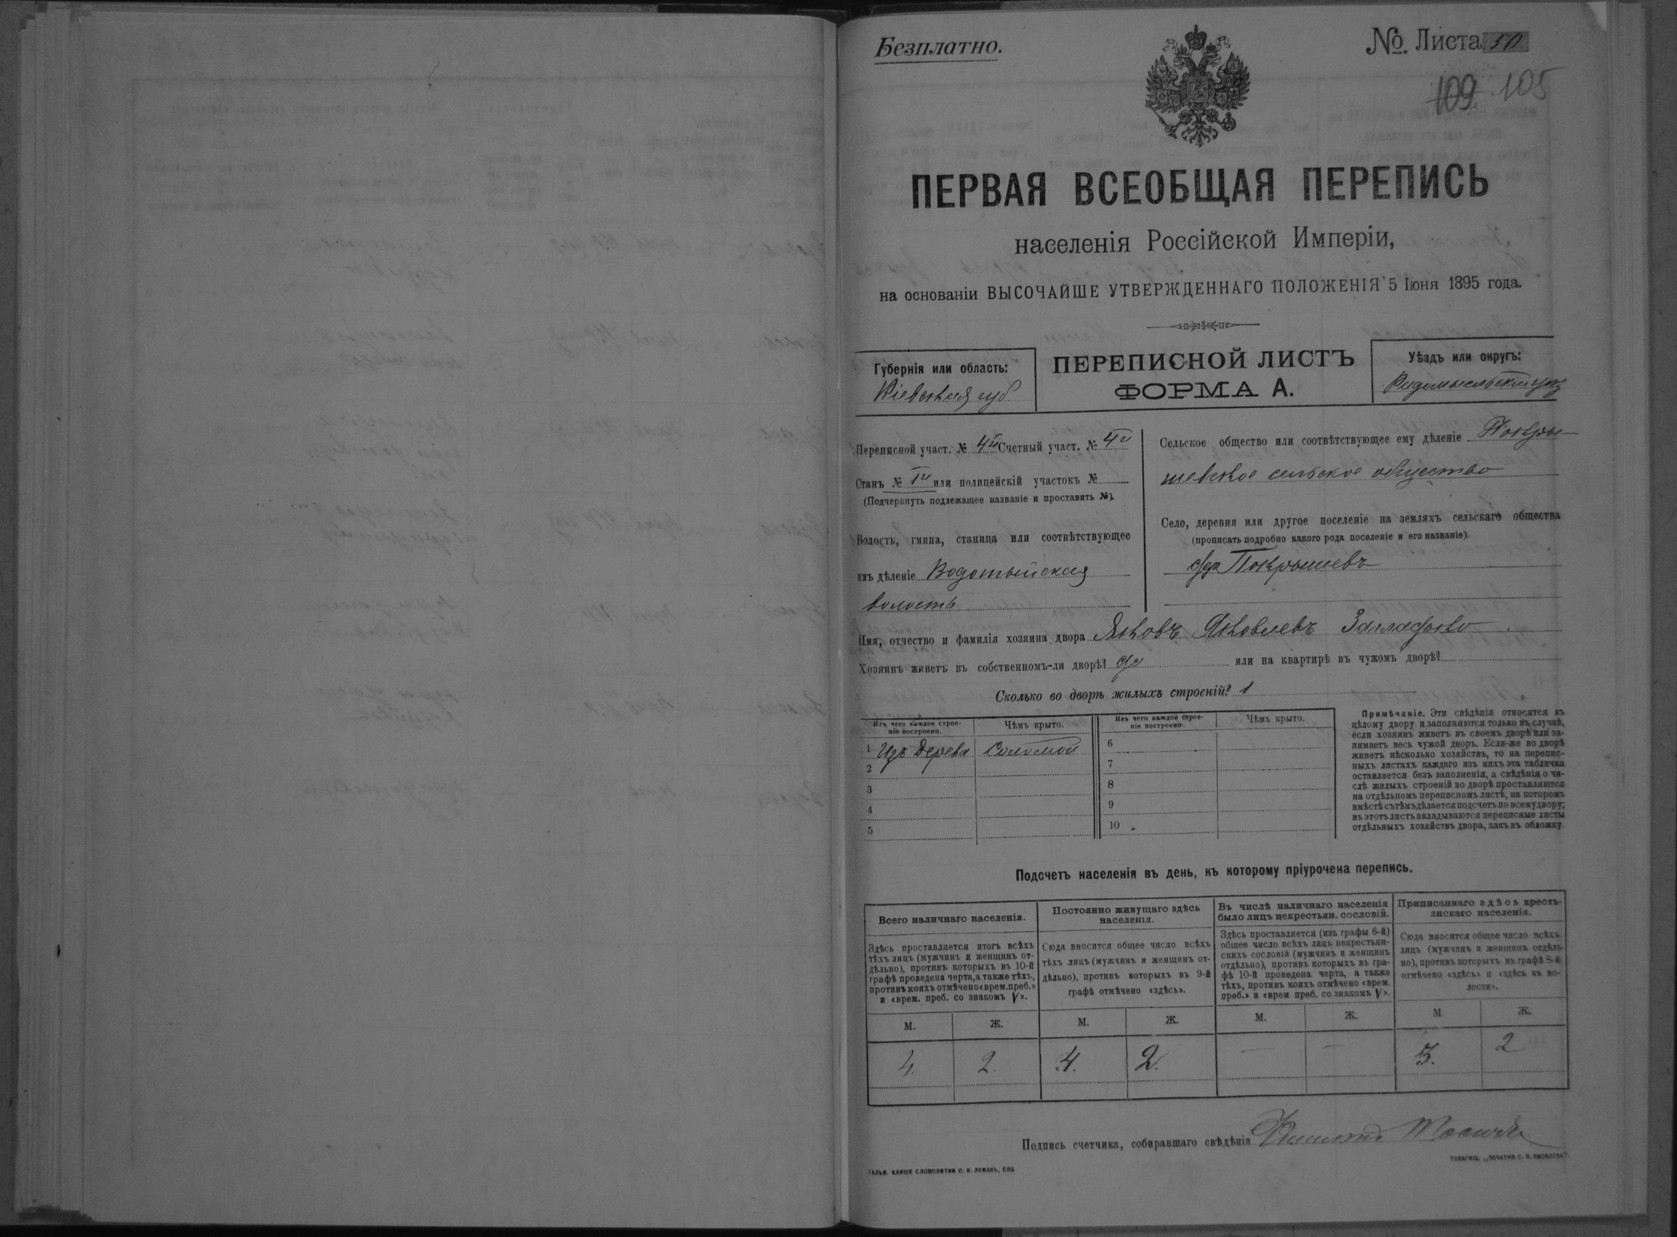 Безплатно.
№ Листа 50
109 105
ПЕРВАЯ ВСЕОБЩАЯ ПЕРЕПИСЬ
населенія Россійской Имперіи,
на основаніи ВЫСОЧАЙШЕ УТВЕРЖДЕННАГО ПОЛОЖЕНІЯ 5 Іюня 1895 года.
Губернія или область:
Кіевская губ.
ПЕРЕПИСНОЙ ЛИСТЪ
ФОРМА А.
Уѣздъ или округъ:
Радомысльскій
Переписной участ. № 4й Счетный участ. № 4й
Станъ № или полицейскій участокъ №
(Подчеркнуть подлежащее названіе и проставить №).
Волость, гмина, станица или соотвѣтствующее
имъ дѣленіе Водотыйская
волость
Сельское общество или соотвѣтствующее ему дѣленіе Покры-
шевское сельское общество
Село, деревня или другое поселеніе на земляхъ сельскаго общества
(прописать подробно какого рода поселеніе и его названіе).
Покрышевъ
Имя, отчество и фамилія хозяина двора Яковъ Яковлевъ
Хозяинъ живетъ въ собственномъ-ли дворѣ? да или на квартирѣ въ чужомъ дворѣ?
Сколько во дворѣ жилыхъ строеній? 1
Изъ чего каждое строе-
ніе построено.
Чѣмъ крыто.
Изъ чего каждое строе-
ніе построено.
Чѣмъ крыто.
1 Изъ дерева Соломой
2
3
4
5
6
7
8
9
10
Примѣчаніе. Эти свѣдѣнія относятся къ
цѣлому двору и заполняются только въ случаѣ,
если хозяинъ живетъ въ своемъ дворѣ или за-
нимаетъ весь чужой дворъ. Если-же во дворѣ
живетъ нѣсколько хозяйствъ, то на перепис-
ныхъ листахъ каждаго изъ нихъ эта табличка
оставляется безъ заполненія, а свѣдѣнія о чи-
слѣ жилыхъ строеній во дворѣ проставляются
на отдѣльномъ переписномъ листѣ, на которомъ
вмѣстѣ съ тѣмъ дѣлается подсчетъ по всему двору;
въ этотъ листъ вкладываются переписные листы
отдѣльныхъ хозяйствъ двора, какъ въ обложку.
Подсчетъ населенія въ день, къ которому пріурочена перепись.
Всего наличнаго населенія.
Здѣсь проставляется итогъ всѣхъ
тѣхъ лицъ (мужчинъ и женщинъ от-
дѣльно), противъ которыхъ въ 10-й
графѣ проведена черта, а также тѣхъ,
противъ коихъ отмѣчено «врем. преб.»
и «врем. преб. со знакомъ V».
Постоянно живущаго здѣсь
населенія.
Сюда вносится общее число всѣхъ
тѣхъ лицъ (мужчинъ и женщинъ от-
дѣльно), противъ которыхъ въ 9-й
графѣ отмѣчено «здѣсь».
Въ числѣ наличнаго населенія
было лицъ некрестьян. сословій.
Здѣсь проставляется (изъ графы 6-й)
общее число всѣхъ лицъ некрестьян-
скихъ сословій (мужчинъ и женщинъ
отдѣльно), противъ которыхъ въ гра-
фѣ 10-й проведена черта, а также
тѣхъ, противъ коихъ отмѣчено «врем.
преб.» и «врем преб. со знакомъ V».
Приписаннаго здѣсь кресть-
янскаго населенія.
Сюда вносится общее число всѣхъ
лицъ (мужчинъ и женщинъ отдѣль-
но), противъ которыхъ въ графѣ 8-й
отмѣчено «здѣсь» и «здѣсь въ во-
лости».
М. Ж. М. Ж. М. Ж. М. Ж.
4. 2. 4. 2. — — 5. 2
Подпись счетчика, собиравшаго свѣдѣнія